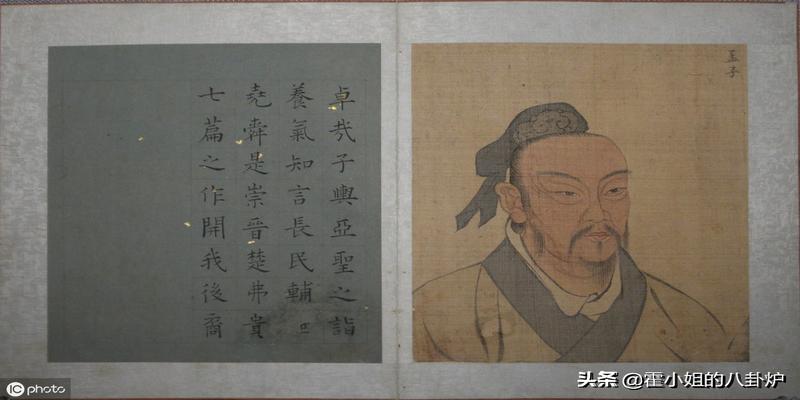 孟子
卓哉子輿亞聖之詣
養氣知言長民輔
堯舜是崇晉楚弗貴
七篇之作開我後裔
IC photo
头条 @霍小姐的八卦炉